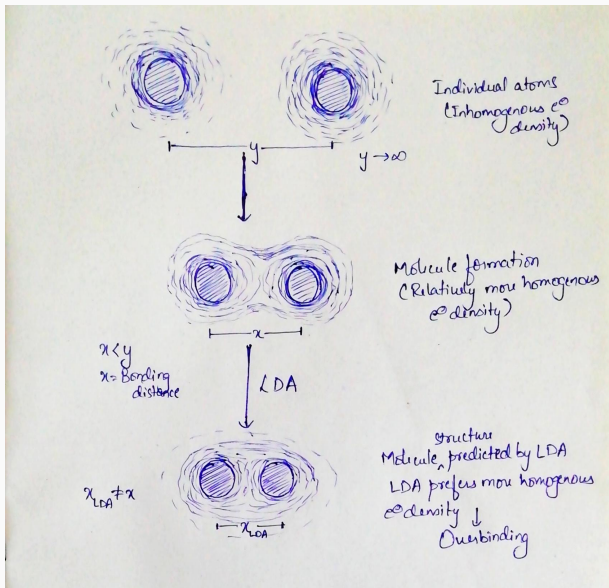 Individual atoms
(Inhomogenous e⊖
density)
y
y→∞
Molecule formation
(Relatively more homogenous
e⊖ density)
x
x<y
x=Bonding
distance
LDA
structure
Molecule ^ predicted by LDA
LDA prefers more homogenous
e⊖ density ↓
Overbinding
x_LDA ≠ x
x_LDA